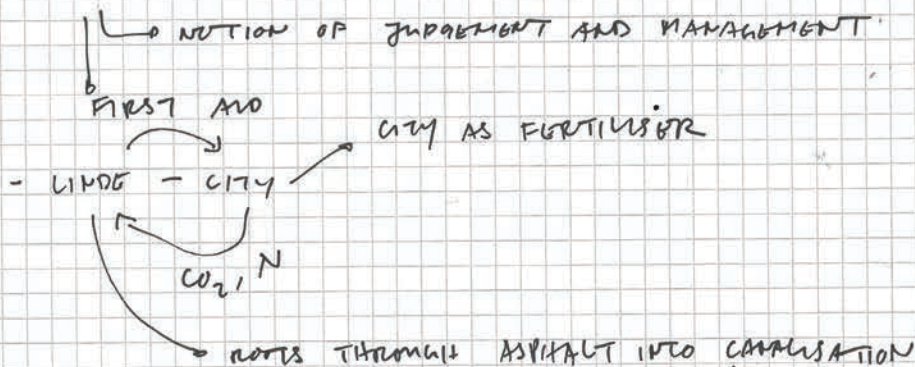 NOTION OF JUDGEMENT AND MANAGEMENT
FIRST AID
CITY AS FERTILISER
- LINDE - CITY
CO2, N
ROOTS THROUGH ASPHALT INTO CANALISATION